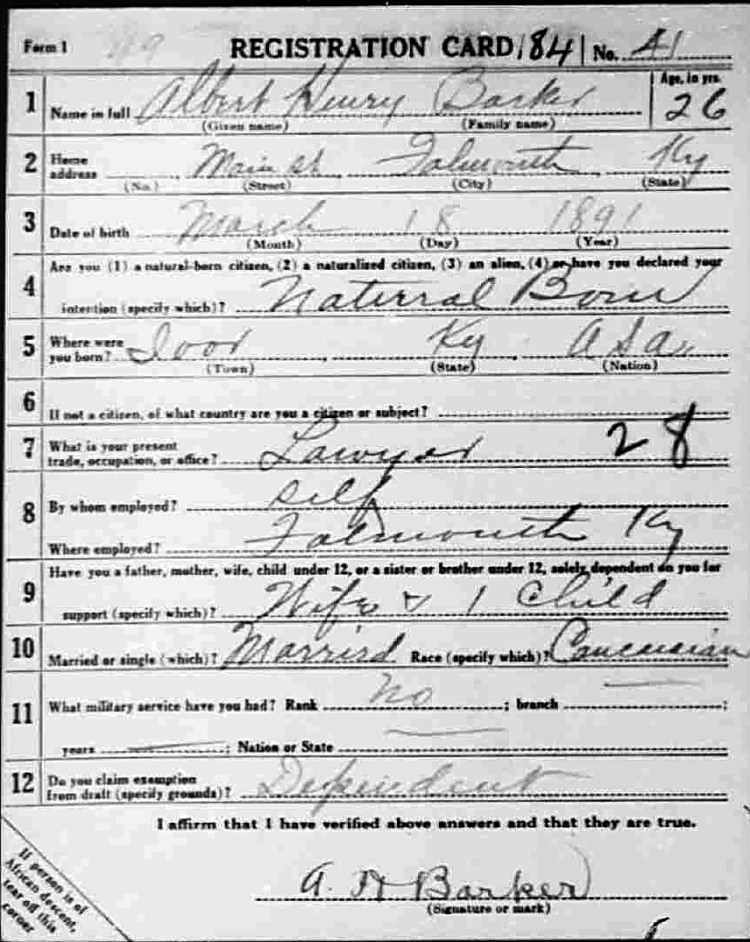 Form 1 REGISTRATION CARD 184 No. 41
1 Name in full Albert Henry Barker Age, in yrs. 26
(Given name) (Family name)
2 Home address Main st Falmouth Ky
(No.) (Street) (City) (State)
3 Date of birth March 18 1891
(Month) (Day) (Year)
4 Are you (1) a natural-born citizen, (2) a naturalized citizen, (3) an alien, (4) or have you declared your
intention (specify which)? Naturral Born
5 Where were you born? Ky
(Town) (State) (Nation)
6 If not a citizen, of what country are you a citizen or subject?
7 What is your present trade, occupation, or office? Lawyer 28
8 By whom employed? Self
Where employed? Falmouth Ky
9 Have you a father, mother, wife, child under 12, or a sister or brother under 12, solely dependent on you for
support (specify which)? Wife & 1 Child
10 Married or single (which)? Married Race (specify which)? Caucasian
11 What military service have you had? Rank no ; branch ;
years ; Nation or State
12 Do you claim exemption from draft (specify grounds)? Dependent
I affirm that I have verified above answers and that they are true.
A. H Barker
(Signature or mark)
If person is of
African descent,
tear off this
corner